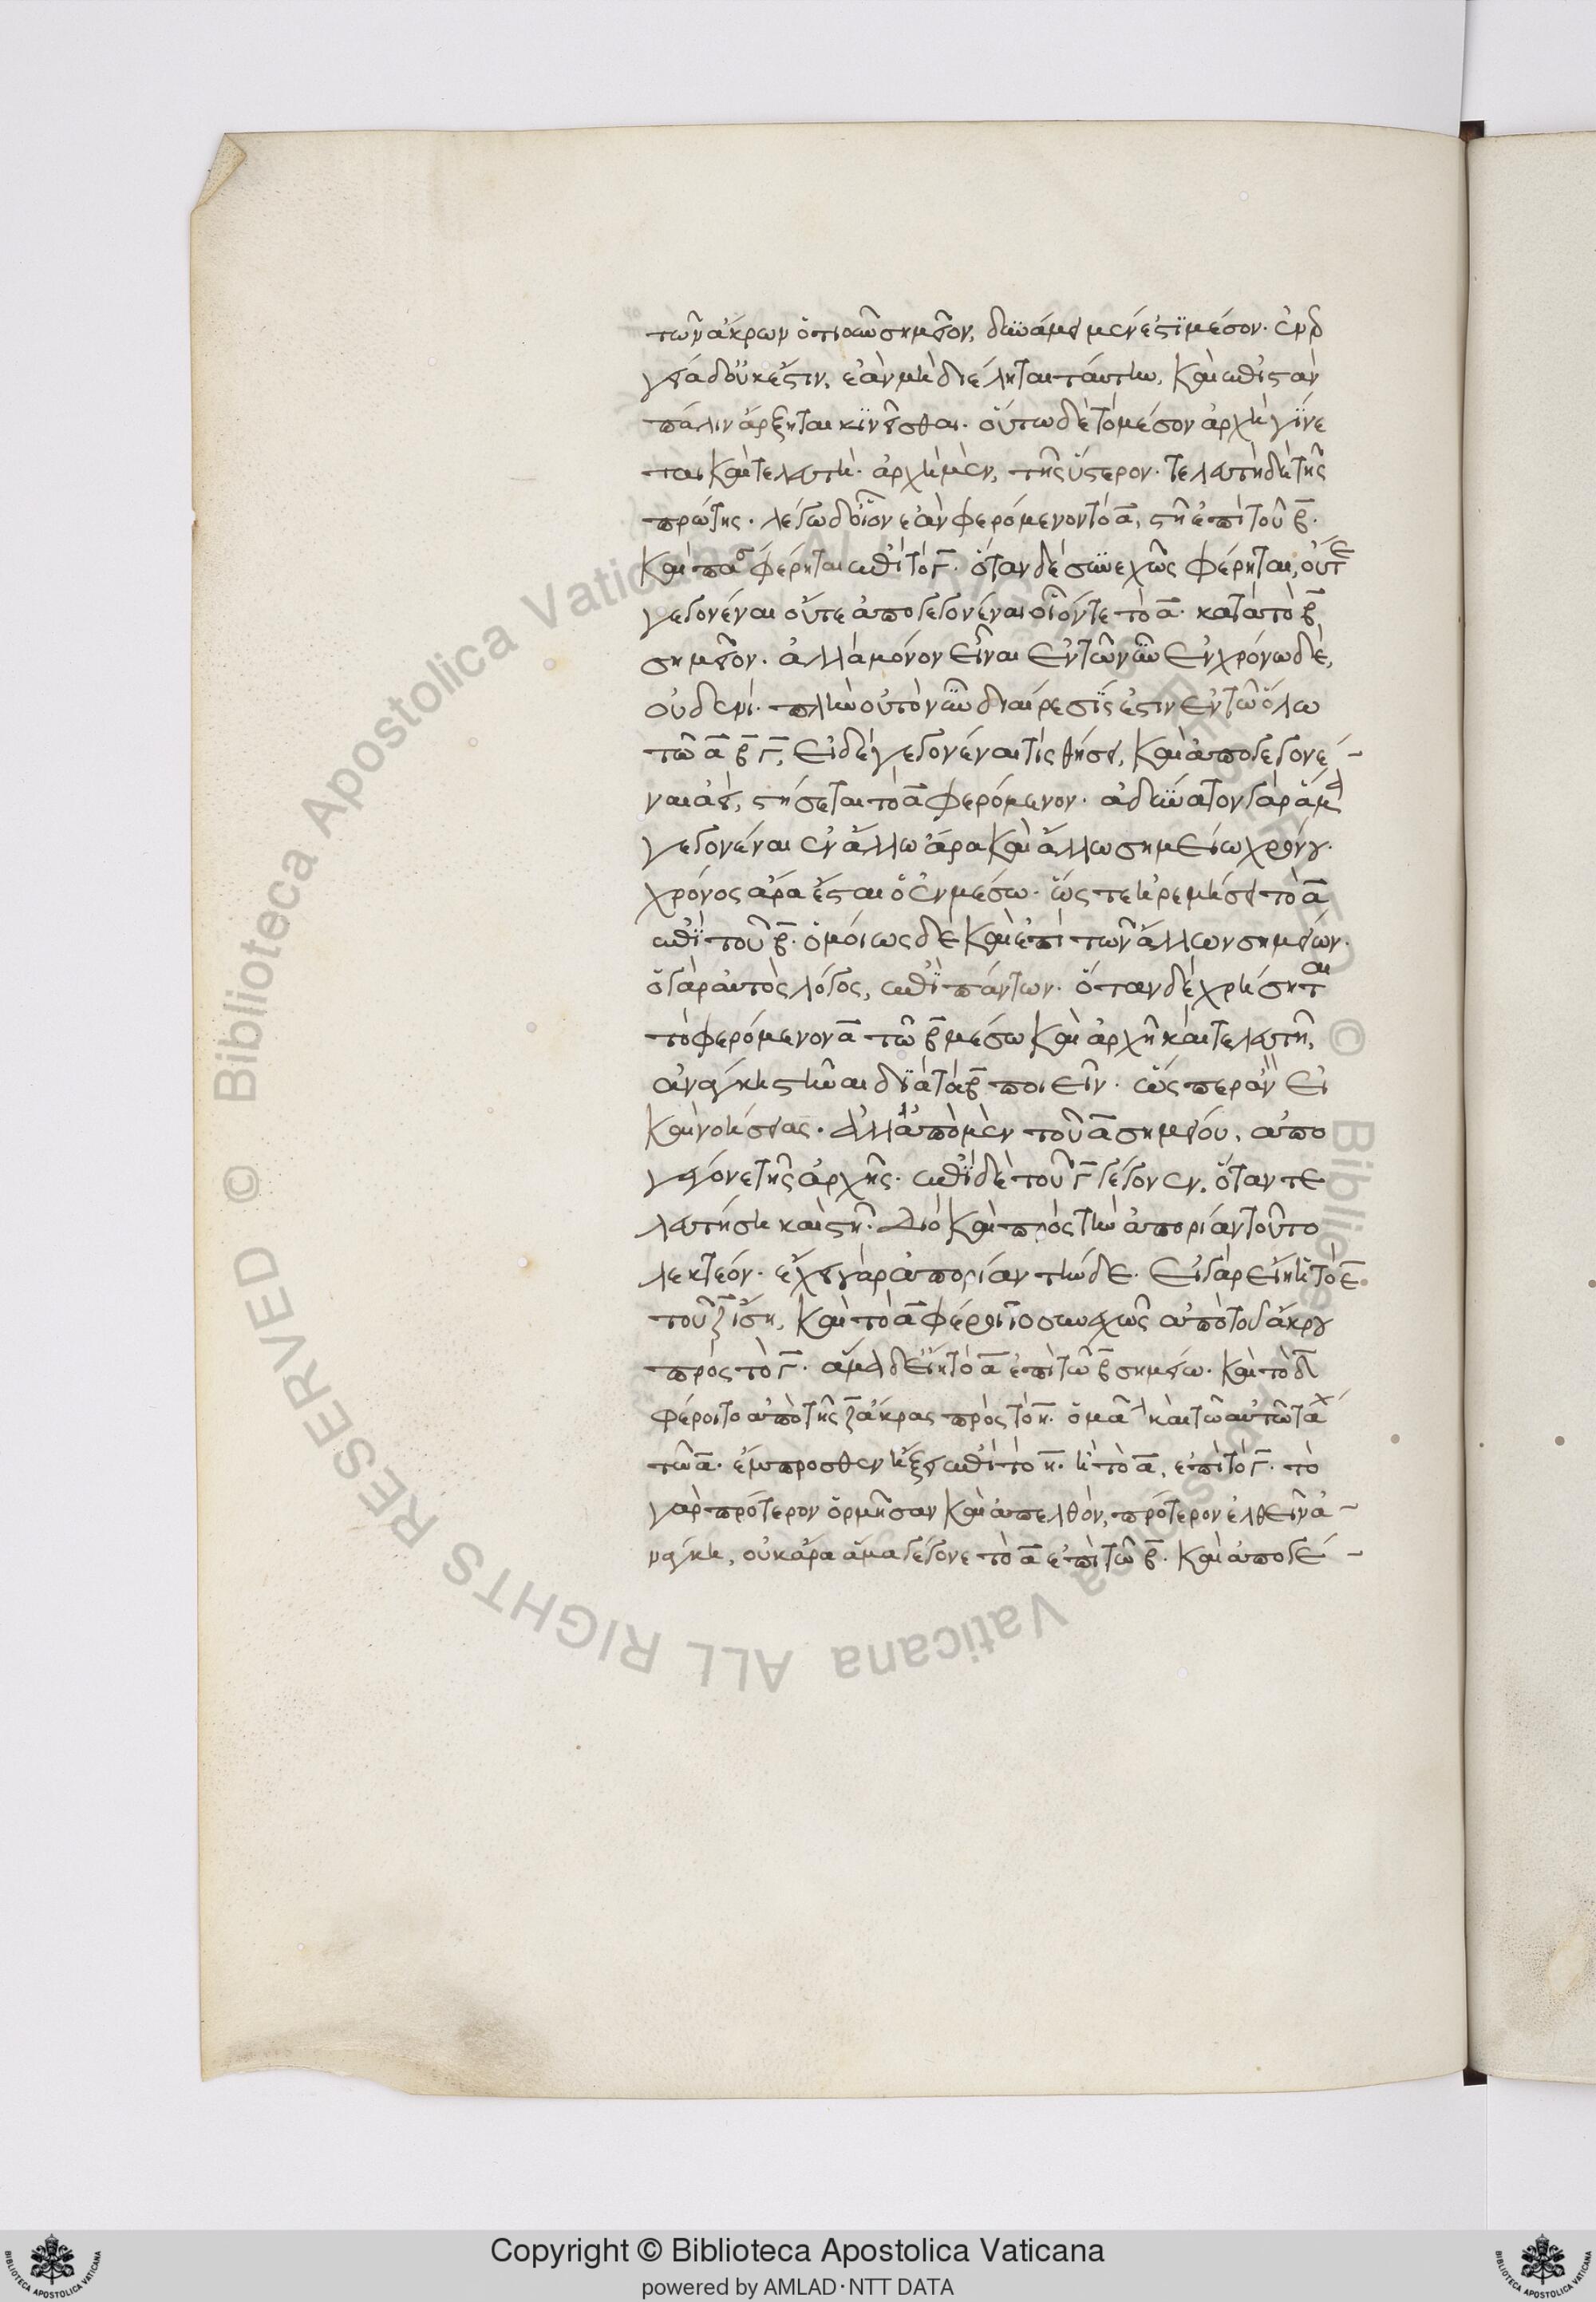 τῶν ἄκρων ὁτιοῦν σημεῖον, δυνάμει μέν ἐστι μέσον· ἐνερ
γείᾳ δ' οὐκ ἔστιν, ἐὰν μὴ διέληται ταύτην, καὶ ἐπιστὰν
πάλιν ἄρξηται κινεῖσθαι. οὕτω δὲ τὸ μέσον ἀρχὴ γίνε
ται καὶ τελευτή· ἀρχὴ μὲν, τῆς ὕστερον· τελευτὴ δὲ τῆς
πρώτης· λέγω δ' οἷον ἐὰν φερόμενον τὸ α, στῇ ἐπὶ τοῦ β·
καὶ πάλιν φέρηται ἐπὶ τὸ γ· ὅταν δὲ συνεχῶς φέρηται, οὔτε
γεγονέναι οὔτε ἀπογεγονέναι οἷόν τε τὸ α· κατὰ τὸ β
σημεῖον· ἀλλὰ μόνον εἶναι ἐν τῶ νῦν ἐν χρόνω δὲ,
οὐδενί· πλὴν οὗ τὸ νῦν διαίρεσίς ἐστιν ἐν τῶ ὅλω
τῶ α β γ, εἰ δὲ γεγονέναι τίς θήσει, καὶ ἀπογεγονέ-
ναι ἀεὶ, στήσεται τὸ α φερόμενον· ἀδύνατον γὰρ ἅμα
γεγονέναι ἐν ἄλλω ἄρα καὶ ἄλλω σημείω χρόνου·
χρόνος ἄρα ἔσται ὁ ἐν μέσω· ὥστε ἠρεμήσει τὸ α
ἐπὶ τοῦ β· ὁμοίως δὲ καὶ ἐπὶ τῶν ἄλλων σημείων·
ὁ γὰρ αὐτὸς λόγος, ἐπὶ πάντων· ὅταν δὲ χρήσηται
τὸ φερόμενον α τῶ β μέσω καὶ ἀρχῆ καὶ τελευτῆ,
ἀνάγκη στῆναι διὰ τὰ β ποιεῖν· ὥσπερ ἂν εἰ
καὶ νοήσειας· ἀλλ' ἀπὸ μὲν τοῦ α σημείου, ἀπο
γέγονε τῆς ἀρχῆς· ἐπὶ δὲ τοῦ γ γέγονεν, ὅταν τε
λευτήση καὶ στῆ· διὸ καὶ πρὸς τὴν ἀπορίαν τοῦτο
λεκτέον· ἔχει γὰρ ἀπορίαν τήνδε· εἰ γὰρ εἴη ἡ τὸ ε
τοῦ ζ ἴση, καὶ τὸ α φέροιτο συνεχῶς ἀπὸ τοῦ ἄκρου
πρὸς τὸ γ· ἅμα δ' εἴη τὸ α ἐπὶ τῶ β σημείω· καὶ τὸ δ
φέροιτο ἀπὸ τῆς ζ ἄκρας πρὸς τὸ η· ὁμαλ καὶ τῶ αὐτῶ ταχ
τῶ α· ἔμπροσθεν ἥξει ἐπὶ τὸ η· ἢ τὸ α, ἐπὶ τὸ γ· τὸ
γὰρ πρότερον ὁρμῆσαν καὶ ἀπελθὸν, πρότερον ἐλθεῖν ἀ-
νάγκη, οὐκ ἄρα ἅμα γέγονε τὸ α ἐπὶ τῶ β· καὶ ἀπογέ-
Copyright © Biblioteca Apostolica Vaticana
powered by AMLAD·NTT DATA